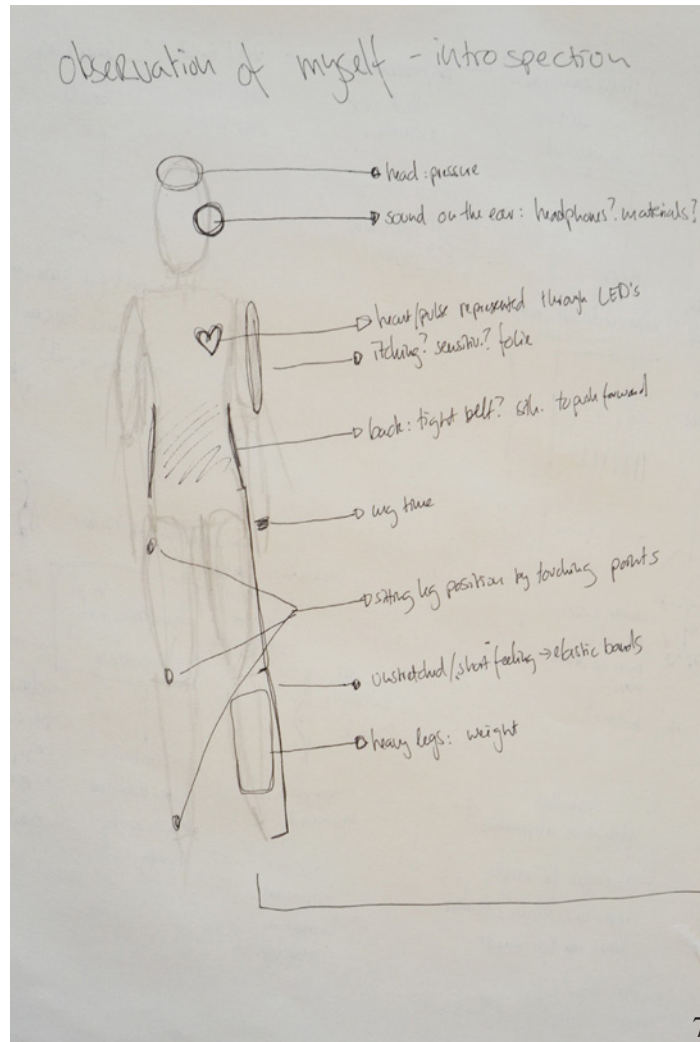 observation of myself - introspection
head: pressure
sound on the ear: headphones? materials?
heart/pulse represented through LED's
itching? sensitiv.? folie
back: tight belt? sth. to push forward
my time
sitting leg position by touching points
unstretched/"short" feeling → elastic bands
heavy legs: weight
7